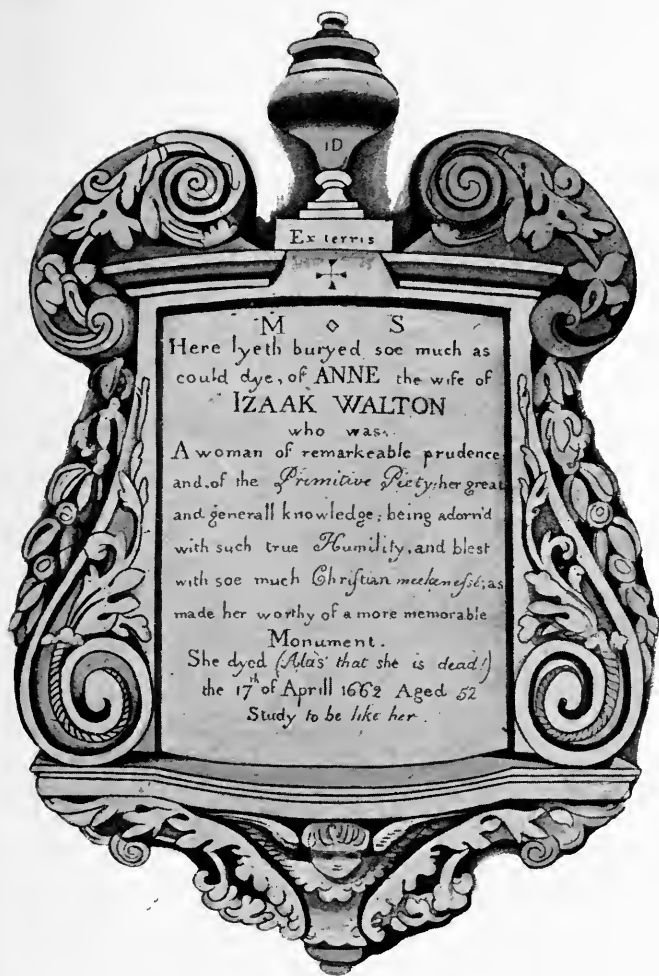 ID
Ex terris
M ◇ S
Here lyeth buryed soe much as
could dye, of ANNE the wife of
IZAAK WALTON
who was.
A woman of remarkeable prudence
and, of the Primitive Piety: her great
and generall knowledge; being adorn'd
with such true Humility, and blest
with soe much Chriſtian meekeneſse; as
made her worthy of a more memorable
Monument.
She dyed (Alas' that she is dead!)
the 17th of Aprill 1662 Aged 52
Study to be like her.